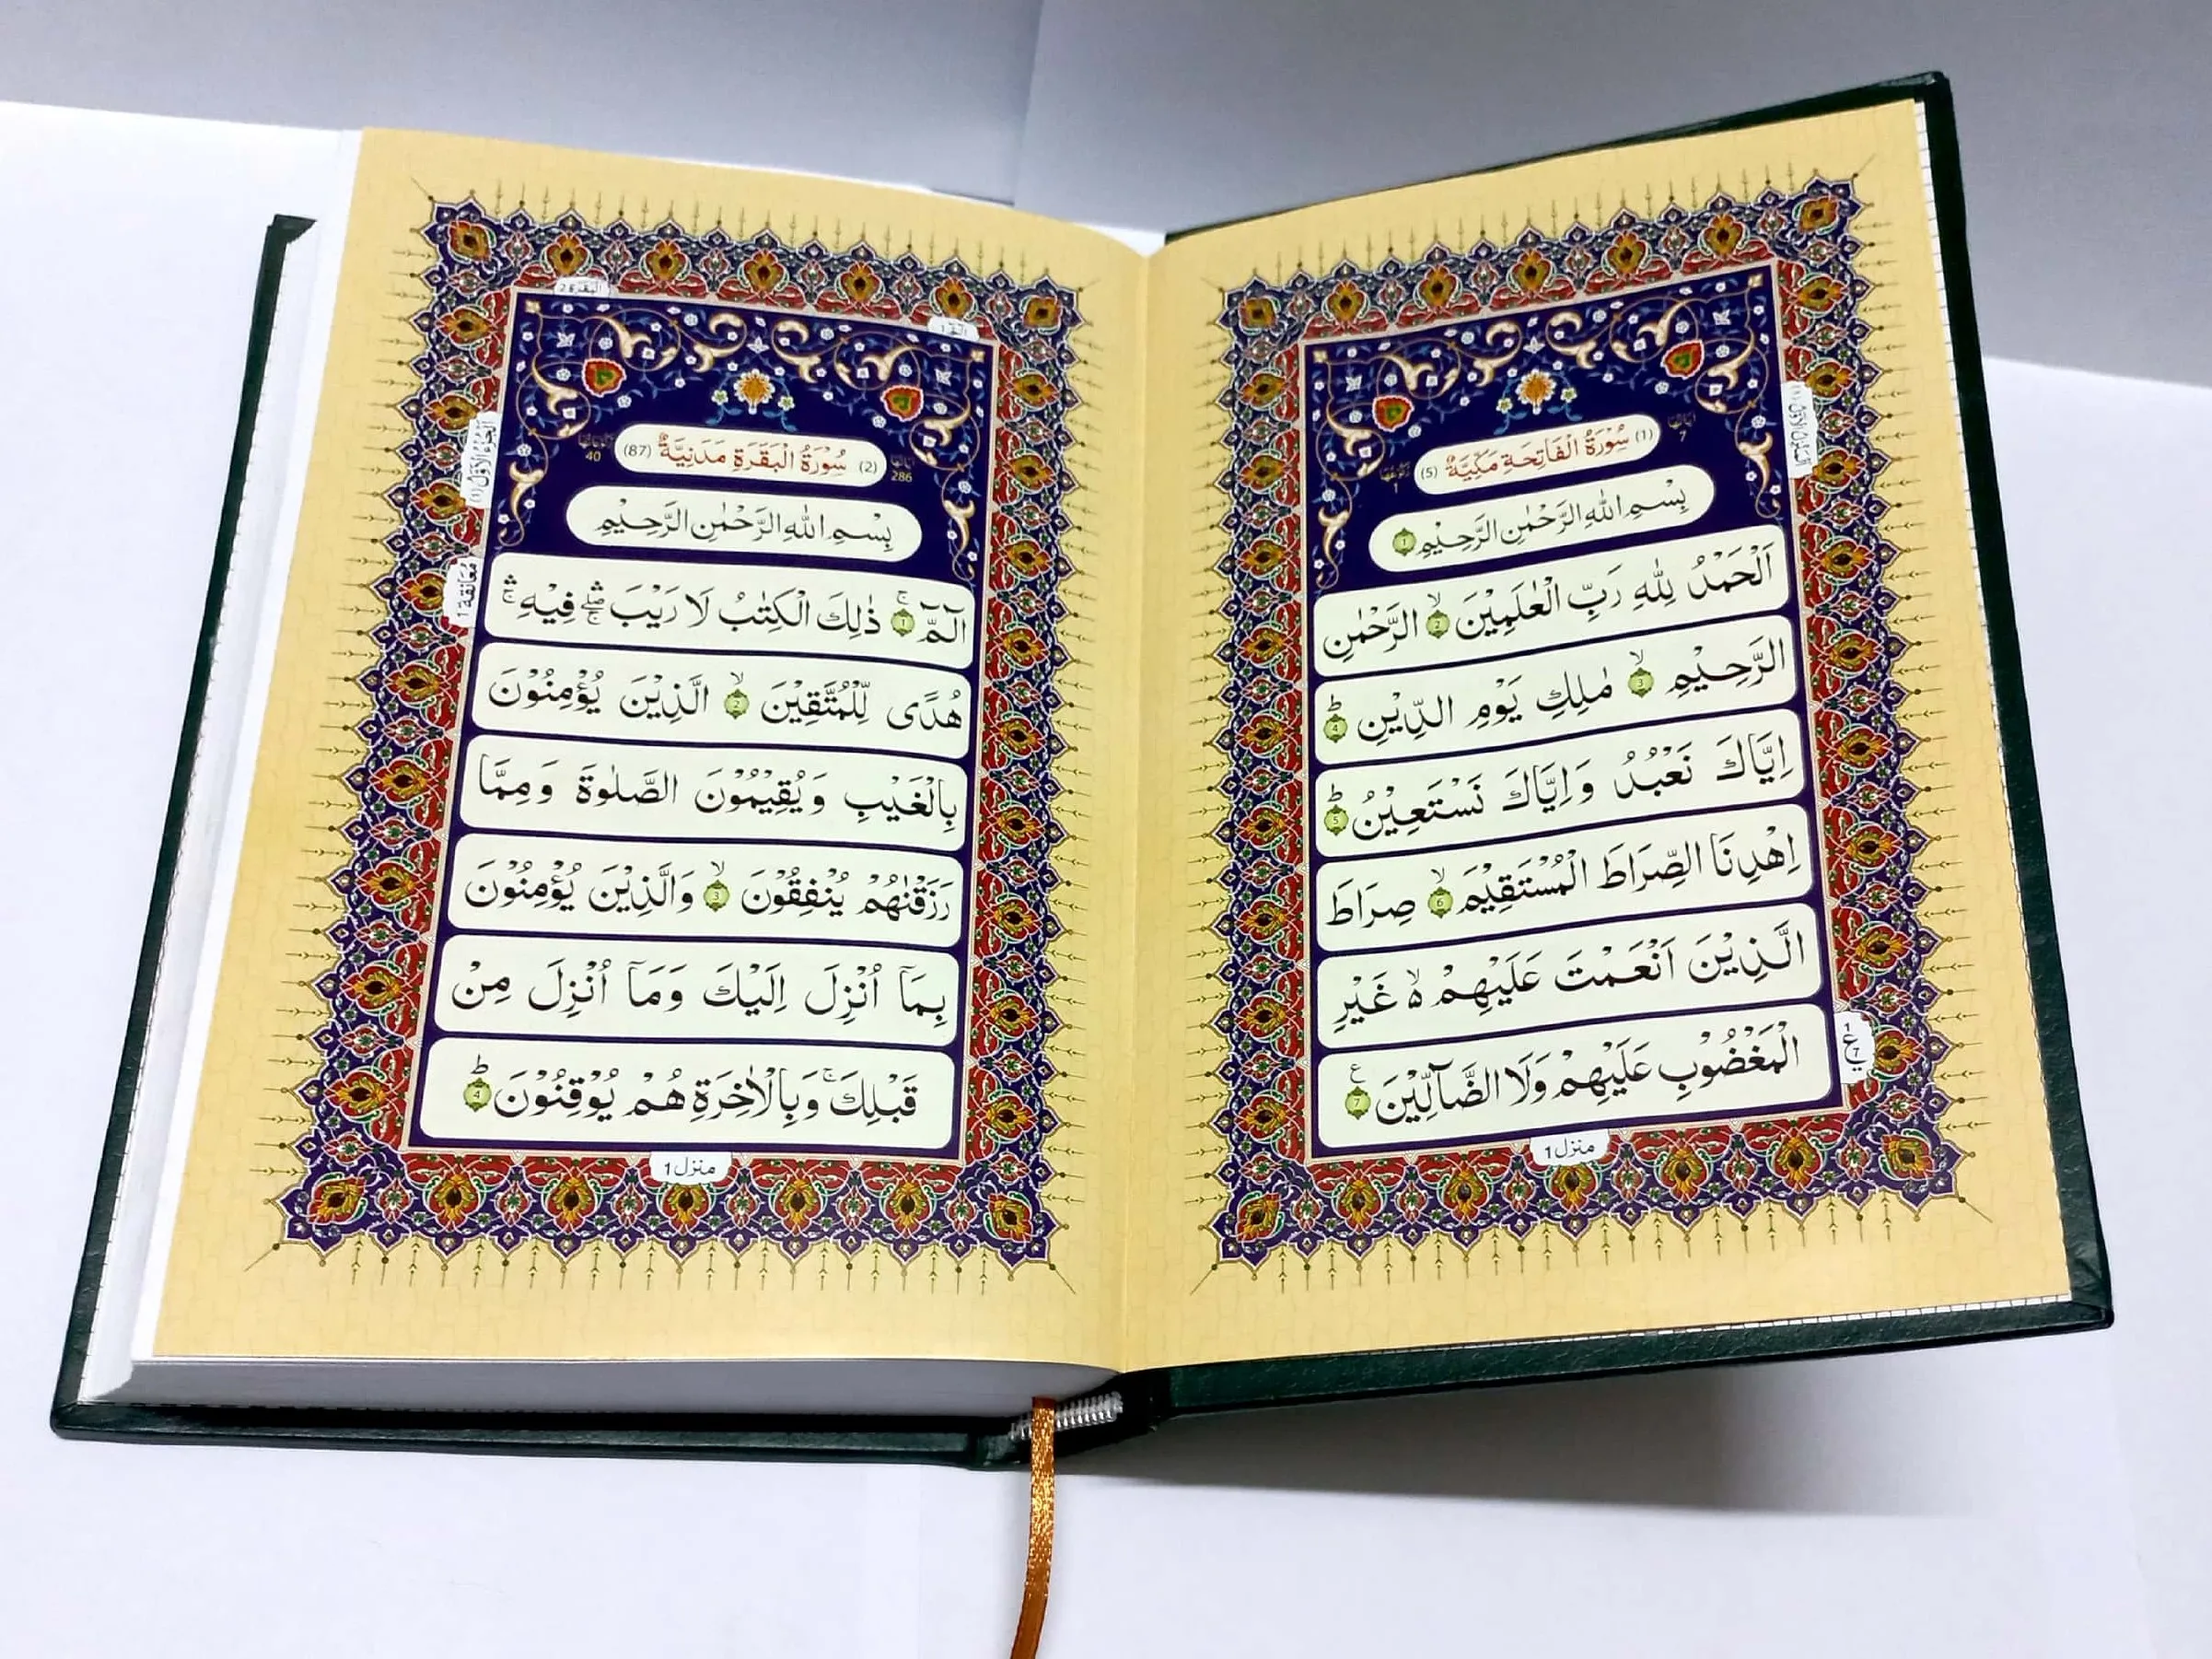 اٰيَاتُهَا 7
(1) سُوْرَةُ الْفَاتِحَةِ مَكِّيَّةٌ (5)
رُكُوْعُهَا 1
بِسْمِ اللّٰهِ الرَّحْمٰنِ الرَّحِيْمِ 1
اَلْحَمْدُ لِلّٰهِ رَبِّ الْعٰلَمِيْنَ ۙ 2 الرَّحْمٰنِ
الرَّحِيْمِ ۙ 3 مٰلِكِ يَوْمِ الدِّيْنِ ؕ 4
اِيَّاكَ نَعْبُدُ وَاِيَّاكَ نَسْتَعِيْنُ ؕ 5
اِهْدِنَا الصِّرَاطَ الْمُسْتَقِيْمَ ۙ 6 صِرَاطَ
الَّذِيْنَ اَنْعَمْتَ عَلَيْهِمْ ۙ۬ غَيْرِ
الْمَغْضُوْبِ عَلَيْهِمْ وَلَا الضَّآلِّيْنَ 7 ع
1 ع 7
منزل 1
البقرة 2
الٓمّٓ 1
اٰيَاتُهَا 286
(2) سُوْرَةُ الْبَقَرَةِ مَدَنِيَّةٌ (87)
رُكُوْعَاتُهَا 40
اَلْجُزْءُ الْاَوَّلُ (1)
بِسْمِ اللّٰهِ الرَّحْمٰنِ الرَّحِيْمِ
الٓمّٓ ۚ 1 ذٰلِكَ الْكِتٰبُ لَا رَيْبَ ۖۛۚ فِيْهِ ۛۚ
معانقة 1
هُدًى لِّلْمُتَّقِيْنَ ۙ 2 الَّذِيْنَ يُؤْمِنُوْنَ
بِالْغَيْبِ وَيُقِيْمُوْنَ الصَّلٰوةَ وَمِمَّا
رَزَقْنٰهُمْ يُنْفِقُوْنَ ۙ 3 وَالَّذِيْنَ يُؤْمِنُوْنَ
بِمَآ اُنْزِلَ اِلَيْكَ وَمَآ اُنْزِلَ مِنْ
قَبْلِكَ ۚ وَبِالْاٰخِرَةِ هُمْ يُوْقِنُوْنَ ؕ 4
منزل 1